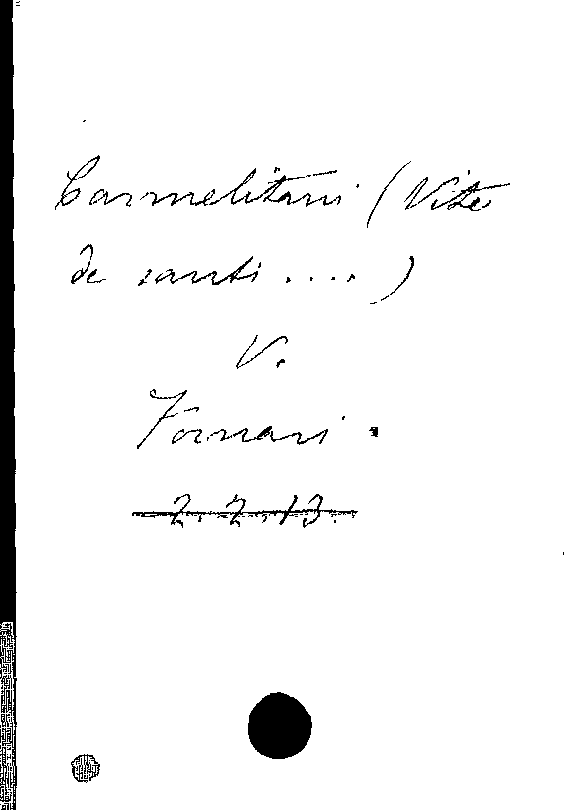 Carmelitani (Vite
de santi ....)
V.
Fornari.
2.2.13.